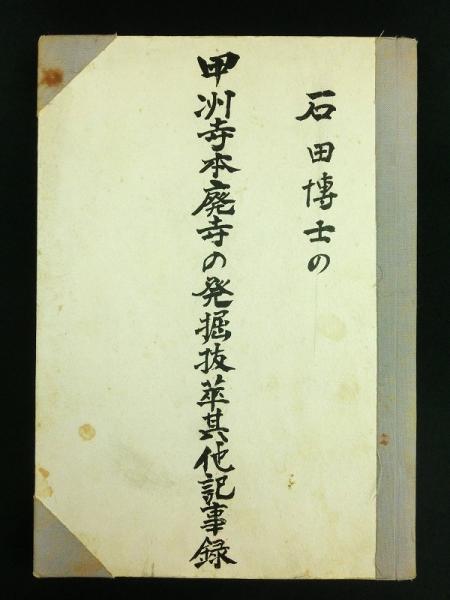 石田博士の
甲州寺本廃寺の発掘抜萃其他記事録